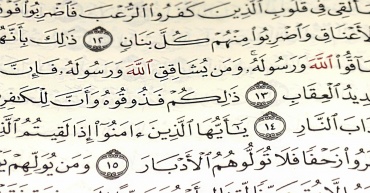 سَأُلْقِي فِي قُلُوبِ الَّذِينَ كَفَرُوا الرُّعْبَ فَاضْرِبُوا فَوْقَ
الْأَعْنَاقِ وَاضْرِبُوا مِنْهُمْ كُلَّ بَنَانٍ ١٢ ذَٰلِكَ بِأَنَّهُمْ
شَاقُّوا اللَّهَ وَرَسُولَهُ ۚ وَمَن يُشَاقِقِ اللَّهَ وَرَسُولَهُ فَإِنَّ
شَدِيدُ الْعِقَابِ ١٣ ذَٰلِكُمْ فَذُوقُوهُ وَأَنَّ لِلْكَافِرِينَ
عَذَابَ النَّارِ ١٤ يَا أَيُّهَا الَّذِينَ ءَامَنُوا إِذَا لَقِيتُمُ الَّذِينَ
كَفَرُوا زَحْفًا فَلَا تُوَلُّوهُمُ الْأَدْبَارَ ١٥ وَمَن يُوَلِّهِمْ